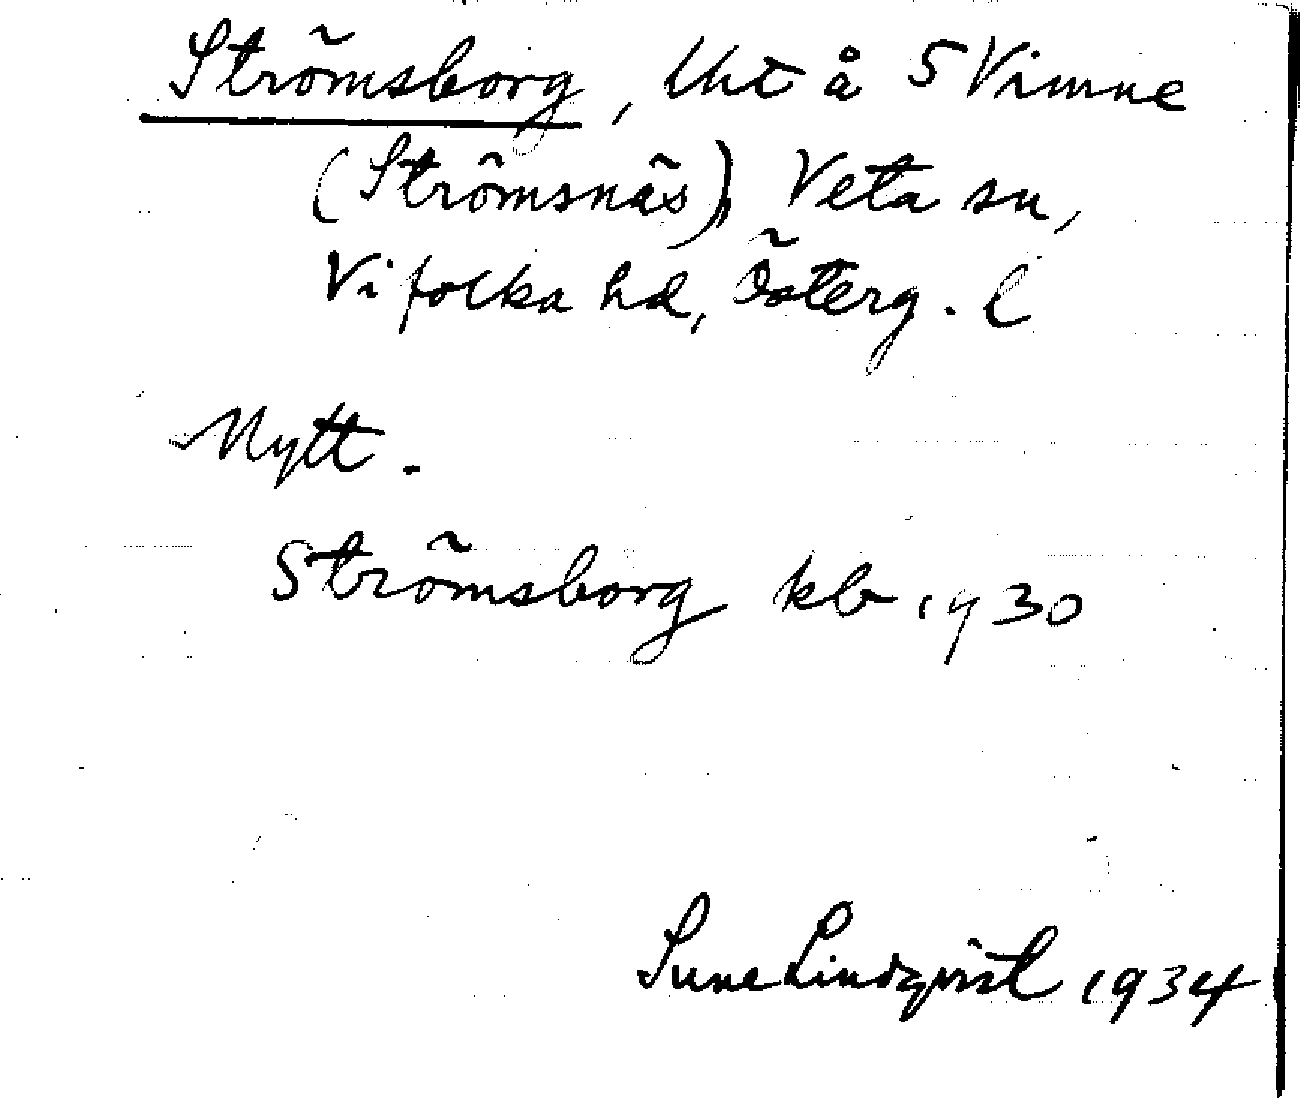 Strömsborg, lht å S Vimne
(Strömsnäs) Veta sn,
Vifolka hd, Österg. l
Nytt.
Strömsborg kb 1930
Sune Lindqvist 1934